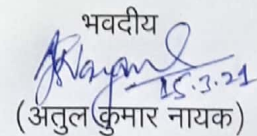 भवदीय
15.3.21
(अतुल कुमार नायक)